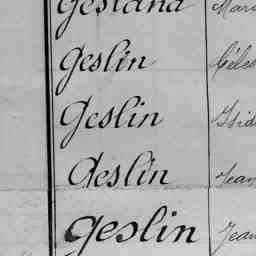 Gesland Mari
Geslin Céles
Geslin Isid
Geslin Jean
Geslin Jean